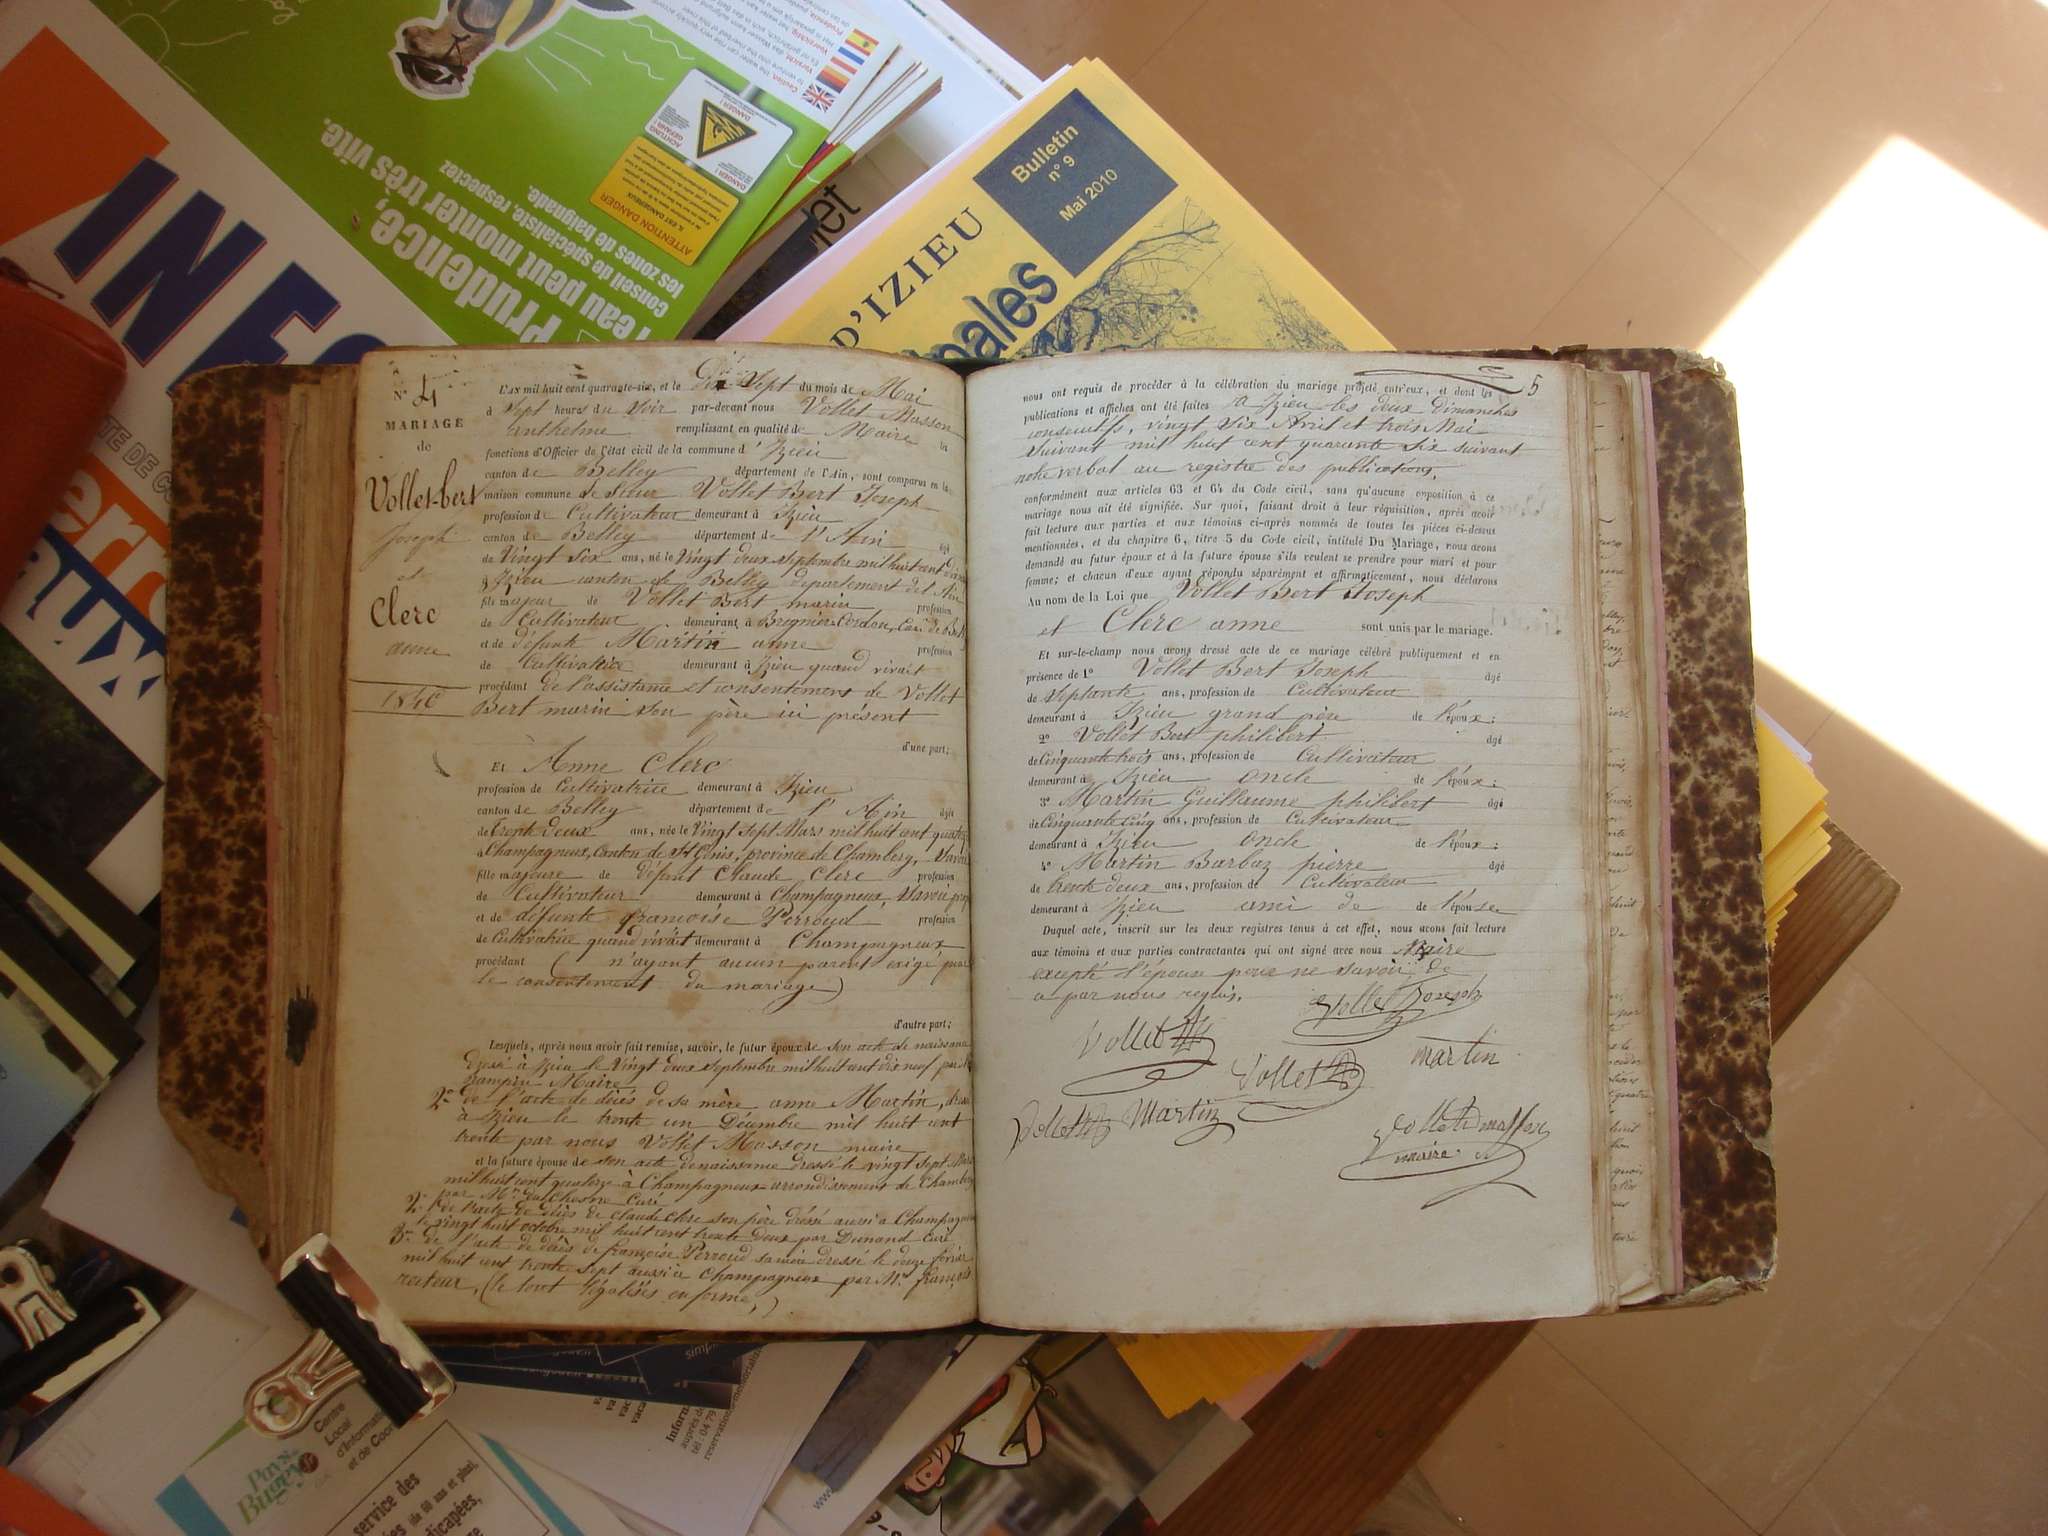 N° 4
MARIAGE
de
Vollet-bert
Joseph
et
Clerc
anne
1846
L'an mil huit cent quarante-six, et le Dix Sept du mois de Mai
à Sept heures du Soir par-devant nous Vollet Masson
Anthelme remplissant en qualité de Maire la
fonctions d'Officier de l'état civil de la commune d' Izieu
canton de Belley département de l'Ain, sont comparus en la
maison commune de Sieur Vollet Bert Joseph
profession de Cultivateur demeurant à Izieu
canton de Belley département de l'Ain âgé
de Vingt Six ans, né le Vingt deux septembre mil huit cent dix
à Izieu canton de Belley département de l'Ain
fils majeur de Vollet Bert marin profession
de Cultivateur demeurant à Bregnier-Cordon, Can. de
et de défunte Martin anne profession
de Cultivatrice demeurant à Izieu quand vivait
procédant de l'assistance et consentement de Vollet
Bert marin son père ici présent
d'une part;
Et Anne Clerc
profession de Cultivatrice demeurant à Izieu
canton de Belley département de l'Ain âgé
de trente deux ans, née le Vingt sept Mars mil huit cent quatorze
à Champagneux, Canton de St Genis, province de Chambery, Savoie
fille majeure de défunt Claude Clerc profession
de Cultivateur demeurant à Champagneux, Savoie
et de défunte françoise Perroud profession
de Cultivatrice quand vivait demeurant à Champagneux
procédant ( n'ayant aucun parent exigé pour
le consentement du mariage)
d'autre part;
Lesquels, après nous avoir fait remise, savoir, le futur époux de son acte de naissance
dressé à Izieu le Vingt deux septembre mil huit cent dix neuf par
Maire
2° de l'acte de décès de sa mère anne Martin,
à Izieu le trente un Décembre mil huit cent
trente par nous Vollet Masson maire
et la future épouse de son acte de naissance dressé le vingt sept Mars
mil huit cent quatorze à Champagneux arrondissement de Chambery
par Mr. du Chesne Curé
2° de l'acte de décès de claude clerc son père dressé aussi a Champagneux
le vingt huit octobre mil huit cent trente deux par Dunand Curé
3° de l'acte de décès de françoise Perroud sa mère dressé le douze fevrier
mil huit cent trente sept aussi à Champagneux par Mr. françois
recteur, (le tout légalisés en forme,)
5
nous ont requis de procéder à la célébration du mariage projeté entr'eux, et dont les
publications et affiches ont été faites a Izieu les deux dimanches
consécutifs, vingt Six Avril et trois Mai
suivant mil huit cent quarante six suivant
note verbal au registre des publications,
conformément aux articles 63 et 64 du Code civil, sans qu'aucune opposition à ce
mariage nous ait été signifiée. Sur quoi, faisant droit à leur réquisition, après avoir
fait lecture aux parties et aux témoins ci-après nommés de toutes les pièces ci-dessus
mentionnées, et du chapitre 6, titre 5 du Code civil, intitulé Du Mariage, nous avons
demandé au futur époux et à la future épouse s'ils veulent se prendre pour mari et pour
femme; et chacun d'eux ayant répondu séparément et affirmativement, nous déclarons
Au nom de la Loi que Vollet Bert Joseph
et Clerc anne sont unis par le mariage.
Et sur-le-champ nous avons dressé acte de ce mariage célébré publiquement et en
présence de 1° Vollet Bert Joseph âgé
de septante ans, profession de Cultivateur
demeurant à Izieu grand père de l'époux;
2° Vollet Bert philibert âgé
de Cinquante trois ans, profession de Cultivateur
demeurant à Izieu oncle de l'époux;
3° Martin Guillaume philibert âgé
de Cinquante cinq ans, profession de Cultivateur
demeurant à Izieu oncle de l'époux;
4° Martin Barbaz pierre âgé
de trente deux ans, profession de Cultivateur
demeurant à Izieu ami de de l'épouse
Duquel acte, inscrit sur les deux registres tenus à cet effet, nous avons fait lecture
aux témoins et aux parties contractantes qui ont signé avec nous Maire
excepté l'épouse pour ne savoir, de
a par nous requis.
Vollet Joseph
Vollet
Vollet
martin
Vollet
Martin
Vollet masson
maire
INFO
Prudence,
l'eau peut monter très vite.
conseil de spécialiste, respectez
les zones de baignade.
ATTENTION DANGER
DANGER !
ACHTUNG GEFAHR !
Prudencia
Voorzichtig
Vorsicht
Caution
Bulletin
n° 9
Mai 2010
D'IZIEU
ipales
Pays
Bugey
Centre
Local
d'Information
et de Coor
service des
de 60 ans et plus,
dicapées,
Inform
auprès de
tél : 04 79
www